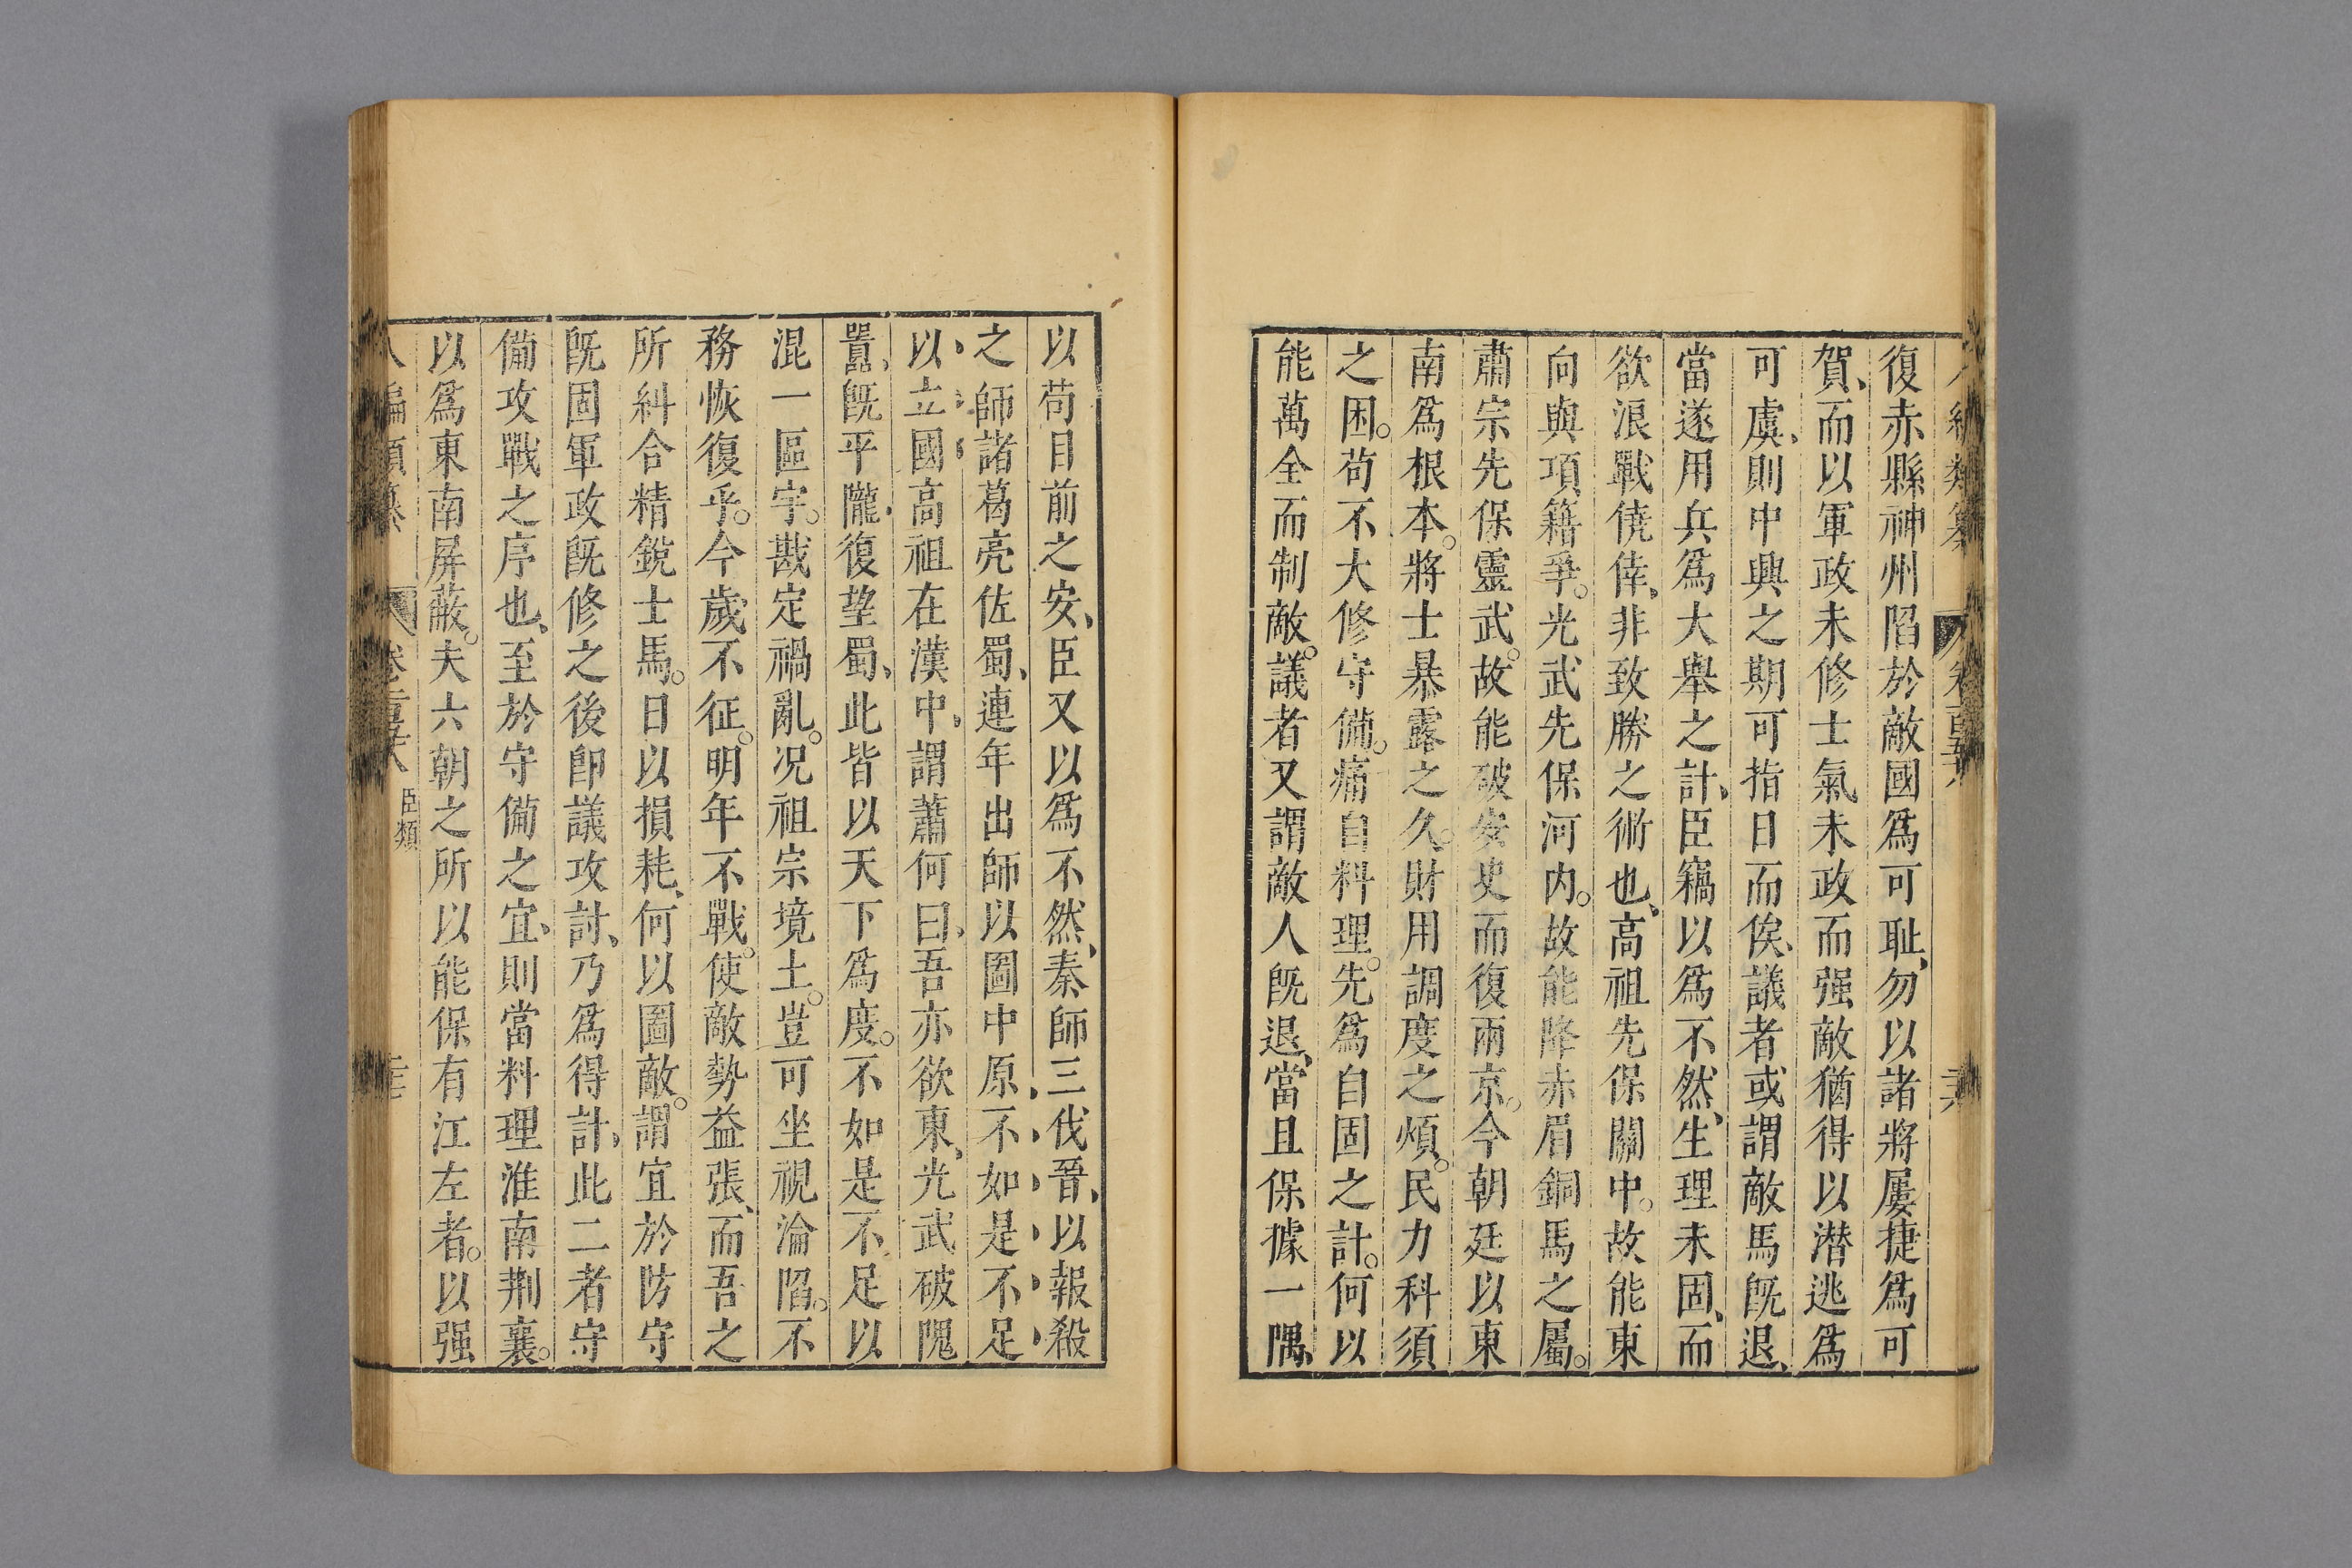 復赤縣神州陷於敵國爲可耻、勿以諸將屢捷爲可
賀、而以軍政未修士氣未政而强敵猶得以潜逃爲
可虞、則中興之期可指日而俟、議者或謂敵馬既退、
當遂用兵爲大舉之計、臣竊以爲不然、生理未固、而
欲浪戰僥倖、非致勝之術也、高祖先保關中。故能東
向與項籍爭。光武先保河内。故能降赤眉銅馬之屬。
肅宗先保靈武。故能破安史而復兩京。今朝廷以東
南爲根本。將士暴露之久。財用調度之煩。民力科須
之困。苟不大修守備。痛自料理。先爲自固之計。何以
能萬全而制敵。議者又謂敵人既退、當且保據一隅、
以苟目前之安、臣又以爲不然、秦師三伐晉、以報殽
之師諸葛亮佐蜀、連年出師以圖中原、不如是不足
以立國高祖在漢中、謂蕭何曰、吾亦欲東、光武破隗
囂、既平隴、復望蜀、此皆以天下爲度。不如是不足以
混一區宇。戡定禍亂。况祖宗境土。豈可坐視淪陷。不
務恢復乎。今歲不征。明年不戰。使敵勢益張、而吾之
所糾合精銳士馬。日以損耗、何以圖敵。謂宜於防守
既固軍政既修之後卽議攻討、乃爲得計、此二者守
備攻戰之序也、至於守備之宜、則當料理淮南荆襄。
以爲東南屏蔽。夫六朝之所以能保有江左者。以强
臣類